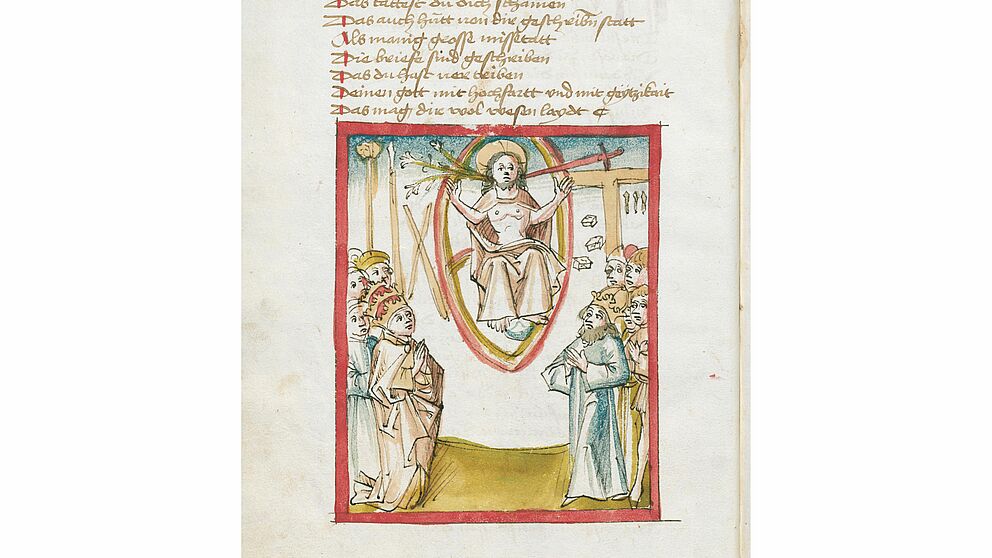 Das tattest du dich schamen
Das auch hütt von dir geschribñ statt
Als manig grosse missetatt
Die briefe sind geschriben
Das du hast vertriben
Deinen gott mit hochfartt und mit geytzikait
Das mag dir wol wesen laydt